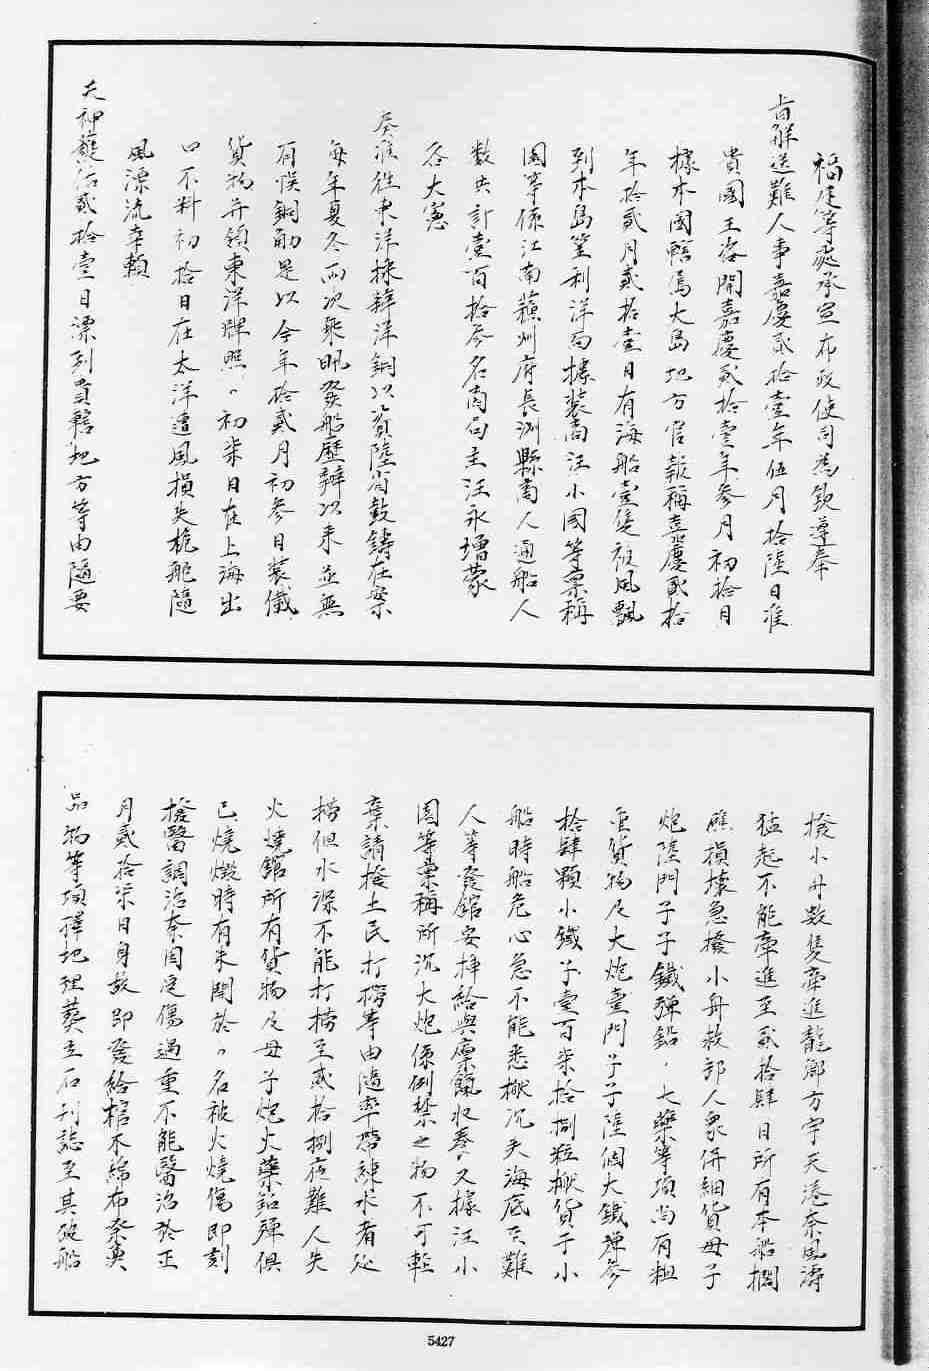 福建等處承宣布政使司為欽遵奉
旨解送難人事嘉慶貳拾壹年伍月拾陸日准
貴國王咨開嘉慶貳拾壹年參月初拾日
據本國轄馬大島地方官報稱嘉慶貳拾
年拾貳月貳拾壹日有海船壹隻被風飄
到本島篁利洋面據裝商汪小國等稟稱
國等係江南蘇州府長洲縣商人通船人
數共計壹百拾參名商局主汪永增蒙
各大憲
奏准往東洋採辦洋銅以資陸省鼓鑄在案
每年夏冬兩次乘帆發船歷辦以來並無
有悮銅觔是以今年拾貳月初參日裝儎
貨物并領東洋牌照於初柒日在上海出
口不料初拾日在太洋遭風損失桅舵隨
風漂流幸賴
天神護佑貳拾壹日漂到貴轄地方等由隨要
撥小舟數隻牽進龍郷方字天港奈風濤
猛起不能牽進至貳拾肆日所有本船擱
礁損壞急撥小舟救卸人衆併細貨母子
炮陸門子子鐵弹鉛火藥等項尚有粗
重貨物及大炮壹門子子陸個大鐵弹參
拾肆顆小鐵子壹百柒拾捌粒撇貨于小
船時船危心急不能悉撇沉失海底至難
人等發館安揷給與廪餼収養又據汪小
國等稟稱所沉大炮係例禁之物不可輕
棄請撥土民打撈等由隨率帶諫水者延
撈但水深不能打撈至貳拾捌夜難人失
火燒館所有貨物及母子炮火藥鉛弹俱
已燒燬時有朱開於名被火燒傷即刻
撥醫調治奈因受傷過重不能醫治於正
月貳拾柒日身故即發給棺木綿布祭奠
品物等項擇地埋葬立石刊誌至其破船
5427